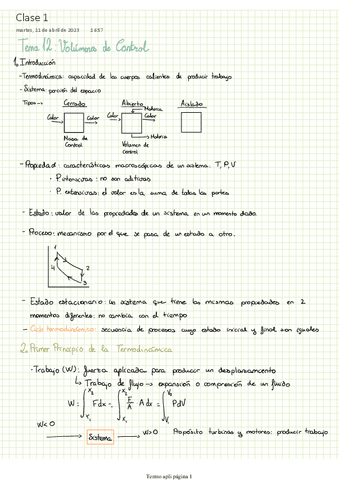 Clase 1
martes, 11 de abril de 2023 16:57
Tema 12. Volúmenes de Control
1. Introducción
-Termodinámica: capacidad de los cuerpos calientes de producir trabajo
-Sistema: porción del espacio
Tipos → Cerrado Abierto Aislado
Materia
Calor Calor Calor Calor
Materia
Masa de Control
Volumen de Control
-Propiedad: características macroscópicas de un sistema: T, P, V
· P. intensivas: no son aditivas
· P. extensivas: el valor es la suma de todas las partes
- Estado: valor de las propiedades de un sistema en un momento dado.
- Proceso: mecanismo por el que se pasa de un estado a otro.
1
2
3
4
- Estado estacionario: un sistema que tiene las mismas propiedades en 2
momentos diferentes: no cambia con el tiempo
- Ciclo termodinámico: secuencia de procesos cuyo estado inicial y final son iguales
2. Primer Principio de la Termodinámica
-Trabajo (W): fuerza aplicada para producir un desplazamiento
↳ Trabajo de flujo → expansión o compresión de un fluido
W = ∫ Fdx = ∫ F/A A dx = ∫ PdV
W<0 Sistema W>0 Propósito turbinas y motores: producir trabajo
Termo apli página 1